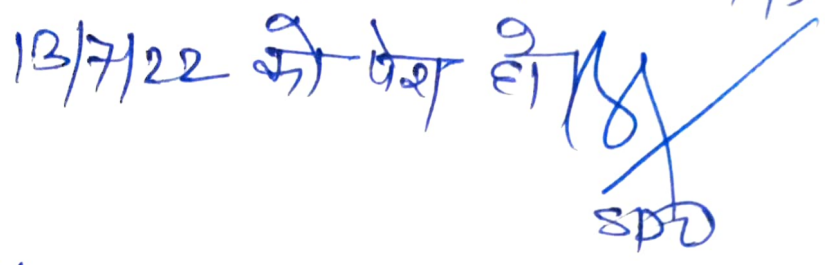 13/7/22 को पेश हो
SDO